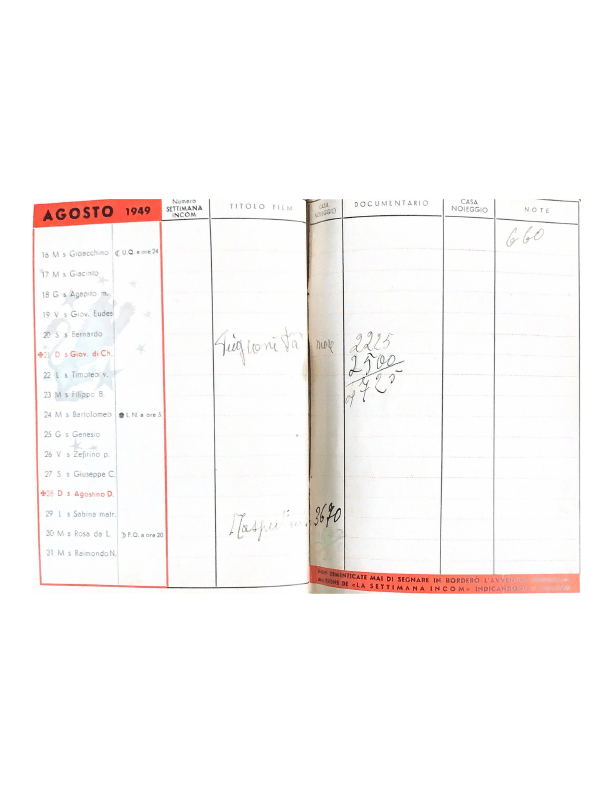 AGOSTO 1949
Numero SETTIMANA INCOM
TITOLO FILM
CASA NOLEGGIO
DOCUMENTARIO
CASA NOLEGGIO
NOTE
660
16 M s Gioacchino ☾ U.Q. a ore 24
17 M s Giacinto
18 G s Agapito m.
19 V s Giov. Eudes
20 S s Bernardo
✠21 D s Giov. di Ch.
2225
2500
4725
22 L s Timoteo v.
23 M s Filippo B.
24 M s Bartolomeo ● L.N. a ore 5
25 G s Genesio
26 V s Zefirino p.
27 S s Giuseppe C.
✠28 D s Agostino D.
29 L s Sabina matr.
3670
30 M s Rosa da L. ☽ P.Q. a ore 20
31 M s Raimondo N.
DIMENTICATE MAI DI SEGNARE IN BORDERÒ
DE «LA SETTIMANA INCOM» INDICANDO